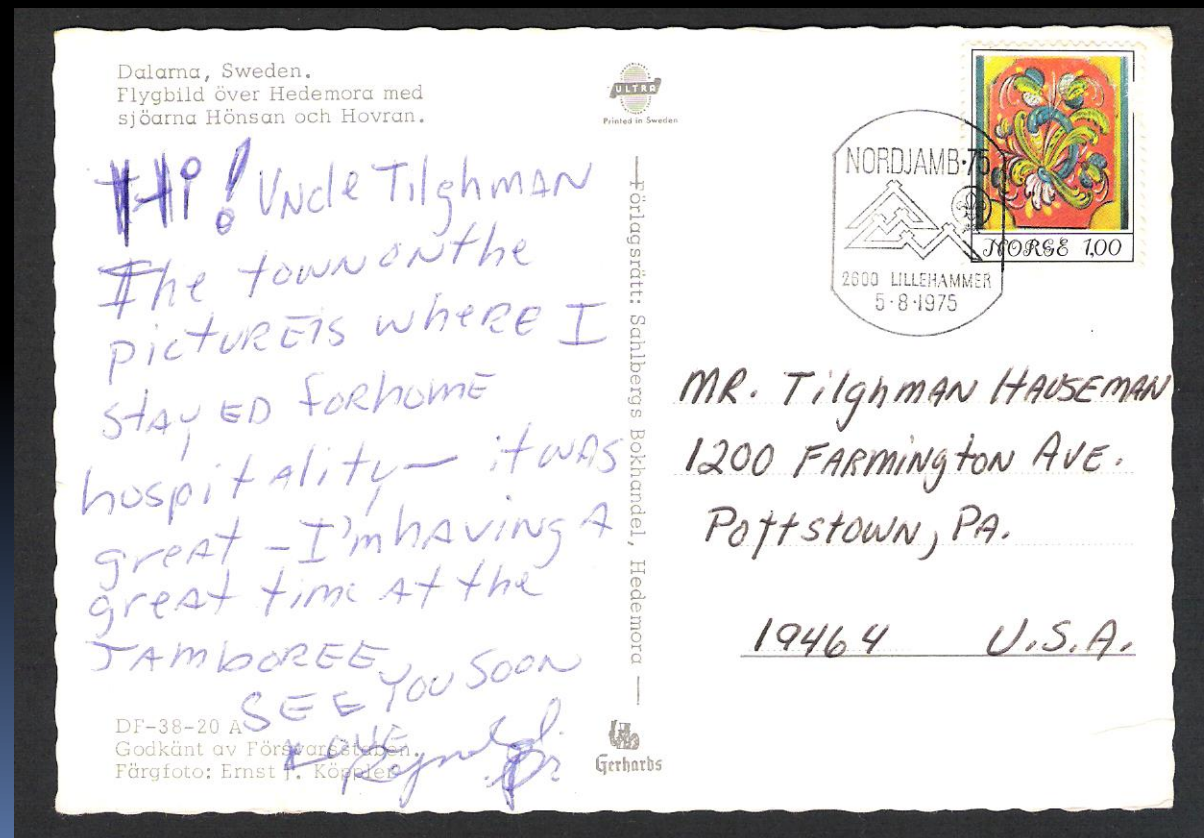 Dalarna, Sweden.
Flygbild över Hedemora med
sjöarna Hönsan och Hovran.
ULTRA
Printed in Sweden
Hi! Uncle Tilghman
The town on the
picture is where I
stayed for home
hospitality — it was
great - I'm having a
great time at the
JAMBOREE,
SEE YOU SOON
LOVE
DF-38-20 A
Godkänt av Försvarsstaben.
Färgfoto: Ernst J. Köppler
Förlagsrätt: Sahlbergs Bokhandel, Hedemora
Gerhards
NORDJAMB·75
2600 LILLEHAMMER
5·8·1975
NORGE 1,00
MR. Tilghman HAUSEMAN
1200 FARMINGTON AVE.
Pottstown, PA.
19464 U.S.A.